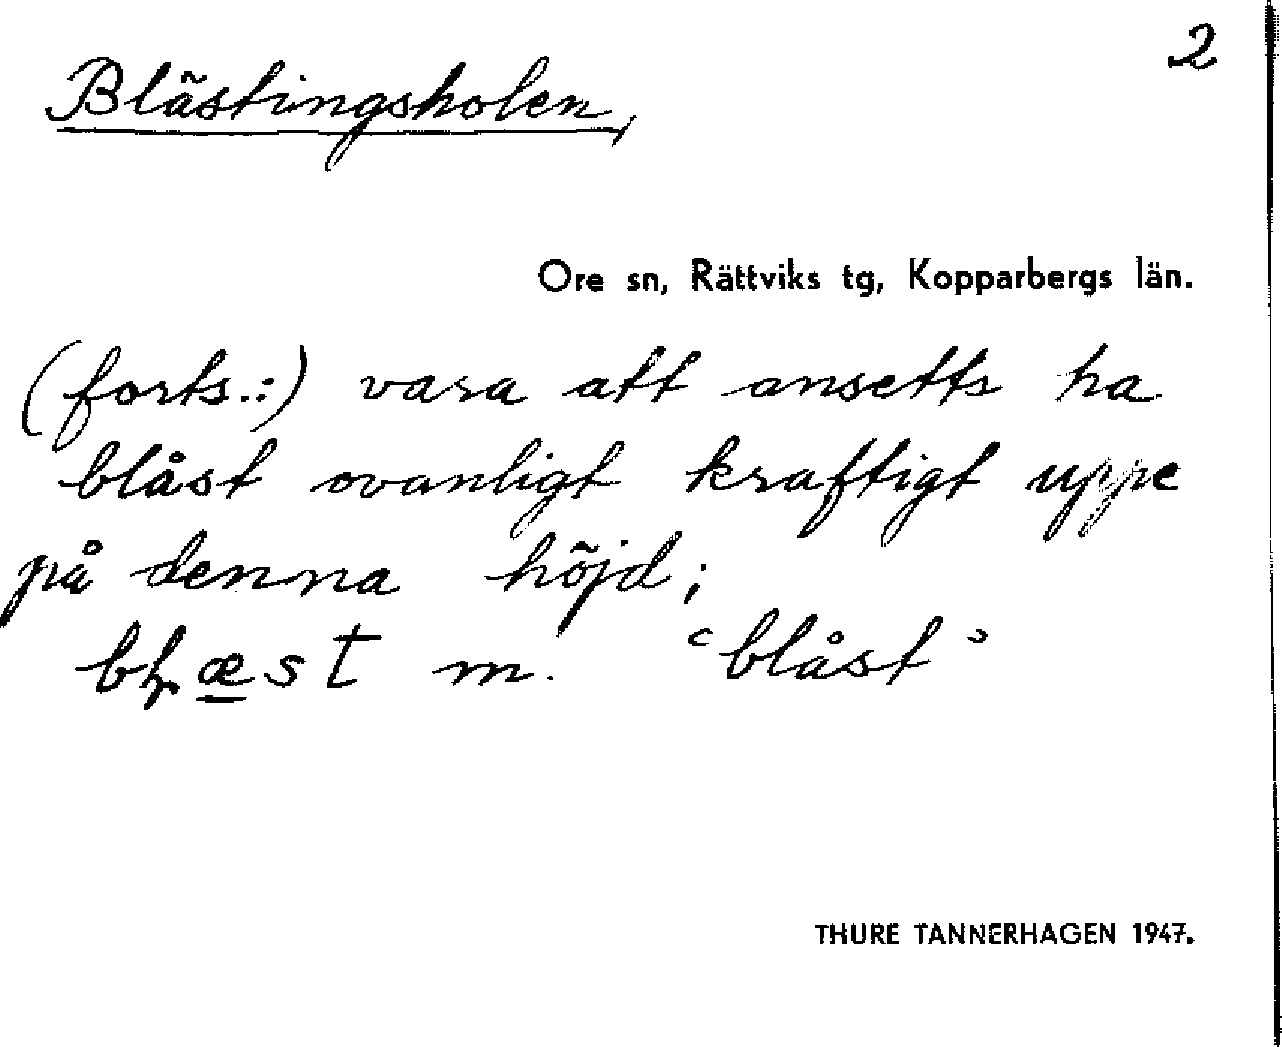 2
Blästingsholen,
Ore sn, Rättviks tg, Kopparbergs län.
(forts.:) vara att ansetts ha
blåst ovanligt kraftigt uppe
på denna höjd;
m. ‘blåst’
THURE TANNERHAGEN 1947.